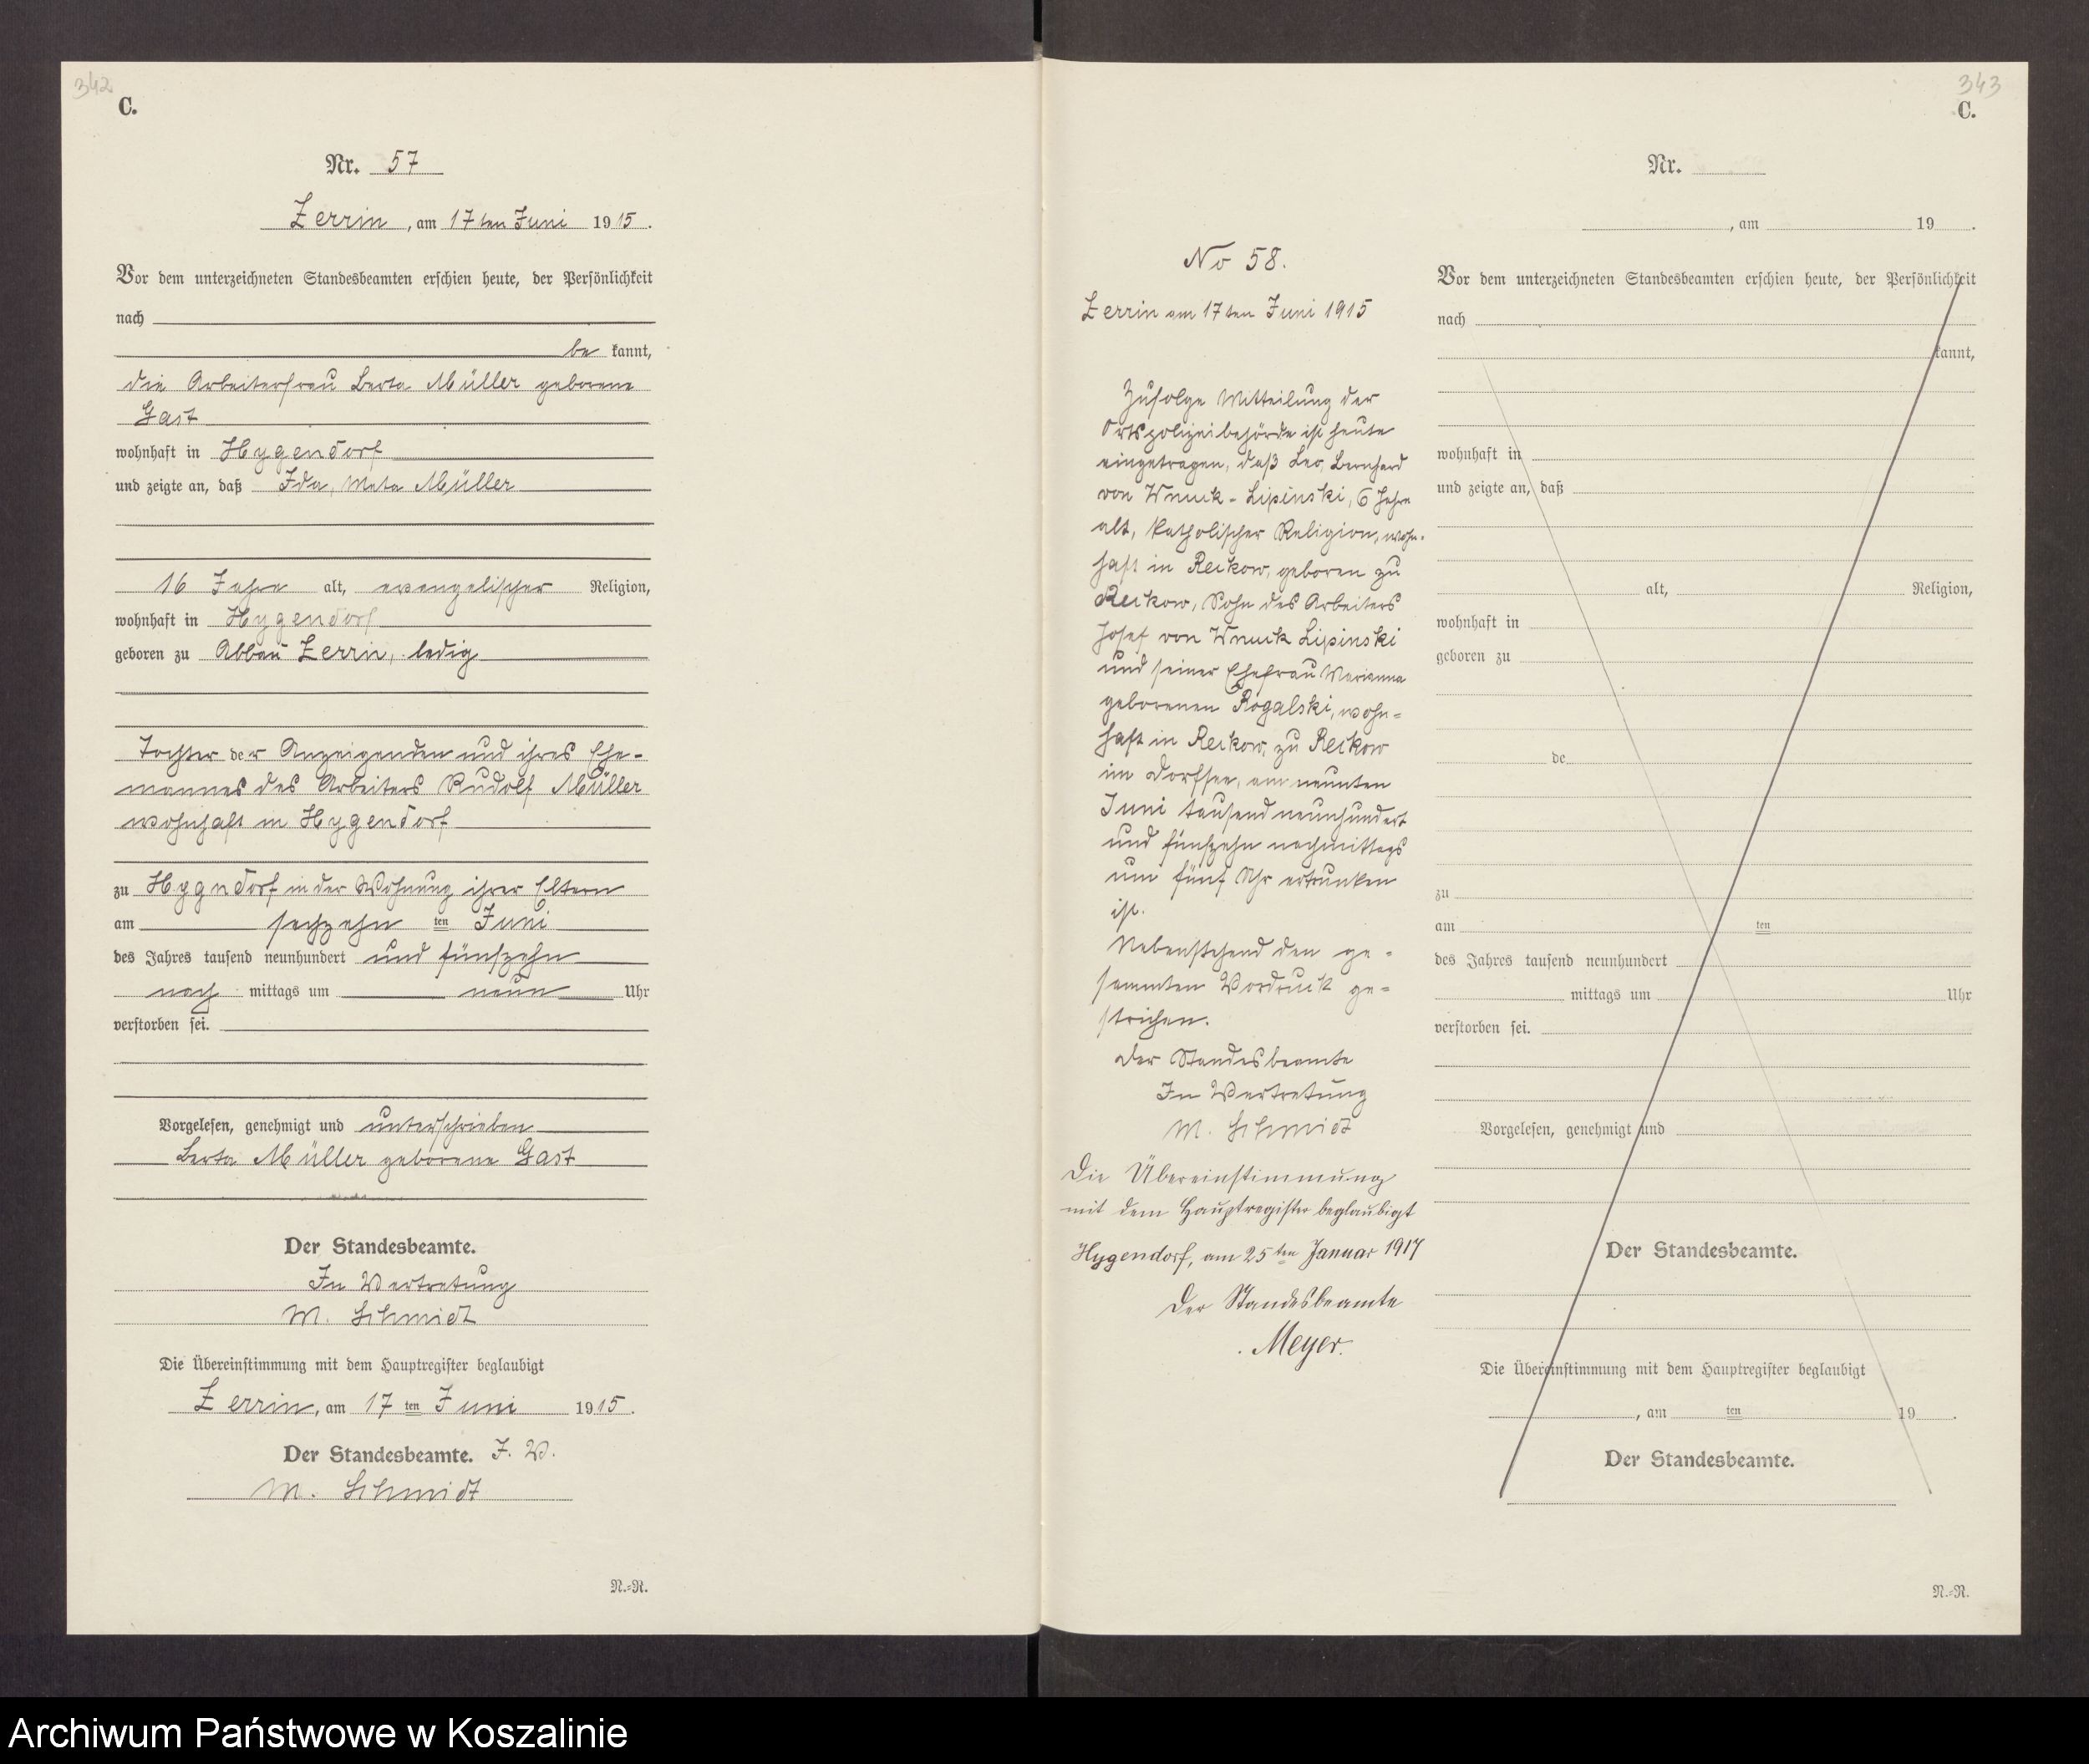 342
C.
Nr. 57
Zerrin, am 17ten Juni 1915.
Vor dem unterzeichneten Standesbeamten erschien heute, der Persönlichkeit
nach
be kannt,
die Arbeiterfrau Berta Müller geborene
Gast
wohnhaft in Hygendorf
und zeigte an, daß Ida, Meta Müller
16 Jahre alt, evangelischer Religion,
wohnhaft in Hygendorf
geboren zu Abbau Zerrin, ledig
Tochter der Anzeigenden und ihres Ehe-
mannes des Arbeiters Rudolf Müller
wohnhaft in Hygendorf
zu Hygndorf in der Wohnung ihrer Eltern
am sechzehn ten Juni
des Jahres tausend neunhundert und fünfzehn
nach mittags um neun Uhr
verstorben sei.
Vorgelesen, genehmigt und unterschrieben
Berta Müller geborene Gast
Der Standesbeamte.
In Vertretung
M. Schmidt
Die Übereinstimmung mit dem Hauptregister beglaubigt
Zerrin, am 17 ten Juni 1915.
Der Standesbeamte. J. V.
M. Schmidt
N.-R.
343
C.
No 58.
Zerrin am 17ten Juni 1915
Zufolge Mitteilung der
Ortspolizeibehörde ist heute
eingetragen, daß Leo, Bernhard
von Wnuck-Lipinski, 6 Jahre
alt, katholischer Religion, wohn-
haft in Reckow, geboren zu
Reckow, Sohn des Arbeiters
Josef von Wnuck Lipinski
und seiner Ehefrau Marianna
geborenen Rogalski, wohn-
haft in Reckow, zu Reckow
im Dorfsee, am neunten
Juni tausend neunhundert
und fünfzehn nachmittags
um fünf Uhr ertrunken
ist.
Nebenstehend den ge-
sammten Vordruck ge-
strichen.
Der Standesbeamte
In Vertretung
M. Schmidt
Die Übereinstimmung
mit dem Hauptregister beglaubigt
Hygendorf, am 25ten Januar 1917
Der Standesbeamte
Meyer.
Nr.
, am 19 .
Vor dem unterzeichneten Standesbeamten erschien heute, der Persönlichkeit
nach
kannt,
wohnhaft in
und zeigte an, daß
alt, Religion,
wohnhaft in
geboren zu
de
zu
am ten
des Jahres tausend neunhundert
mittags um Uhr
verstorben sei.
Vorgelesen, genehmigt und
Der Standesbeamte.
Die Übereinstimmung mit dem Hauptregister beglaubigt
, am ten 19 .
Der Standesbeamte.
N.-R.
Archiwum Państwowe w Koszalinie